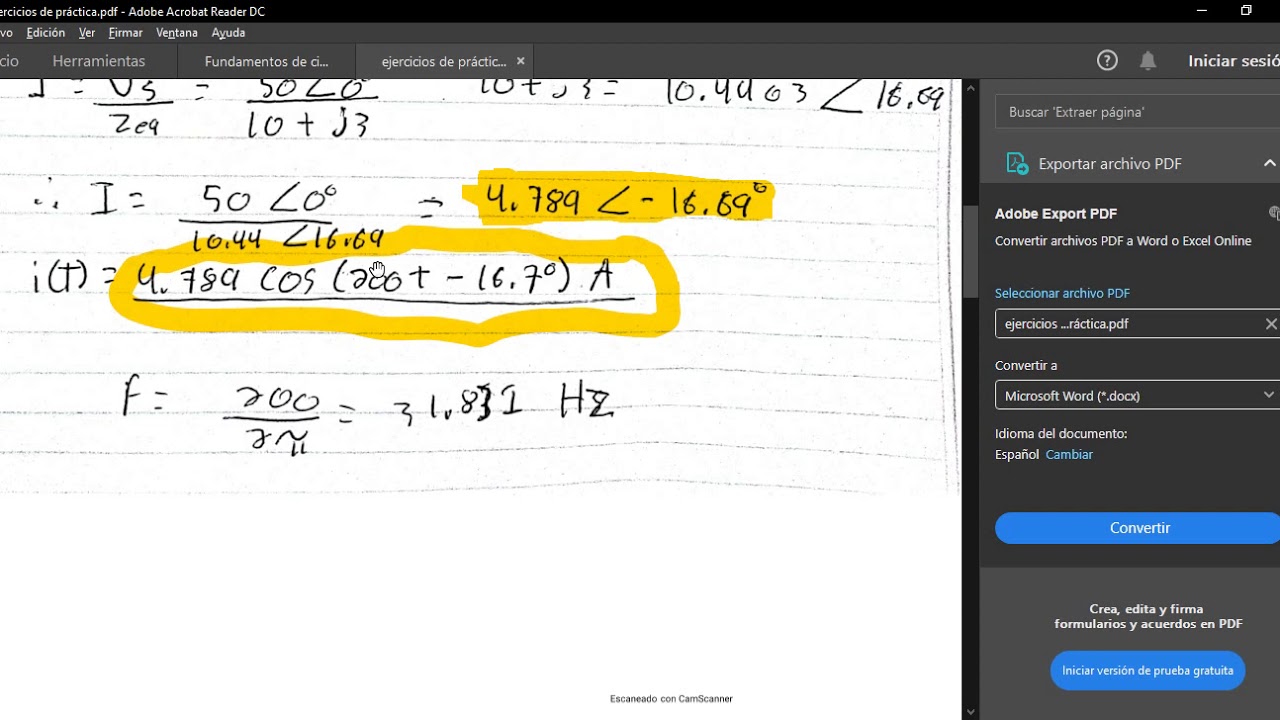 ercicios de práctica.pdf - Adobe Acrobat Reader DC
vo Edición Ver Firmar Ventana Ayuda
cio Herramientas Fundamentos de ci... ejercicios de práctic... × Iniciar sesió
I = Vs / Zeq = 50∠0 / 10 + j3 10 + j3 = 10.4403 ∠ 16.69
∴ I = 50 ∠0° / 10.44 ∠16.69 = 4.789 ∠ - 16.69°
i(t) = 4.789 cos (200t - 16.7°) A
F = 200 / 2π = 31.831 Hz
Escaneado con CamScanner
Buscar 'Extraer página'
Exportar archivo PDF
Adobe Export PDF
Convertir archivos PDF a Word o Excel Online
Seleccionar archivo PDF
ejercicios ...ráctica.pdf
Convertir a
Microsoft Word (*.docx)
Idioma del documento:
Español Cambiar
Convertir
Crea, edita y firma
formularios y acuerdos en PDF
Iniciar versión de prueba gratuita